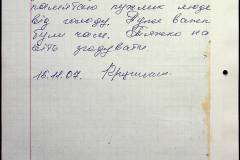 пам'ятаю пухлих люде
від голоду. Дуже важкі
були часи. Тяжко на
згадувати
16.11.07.